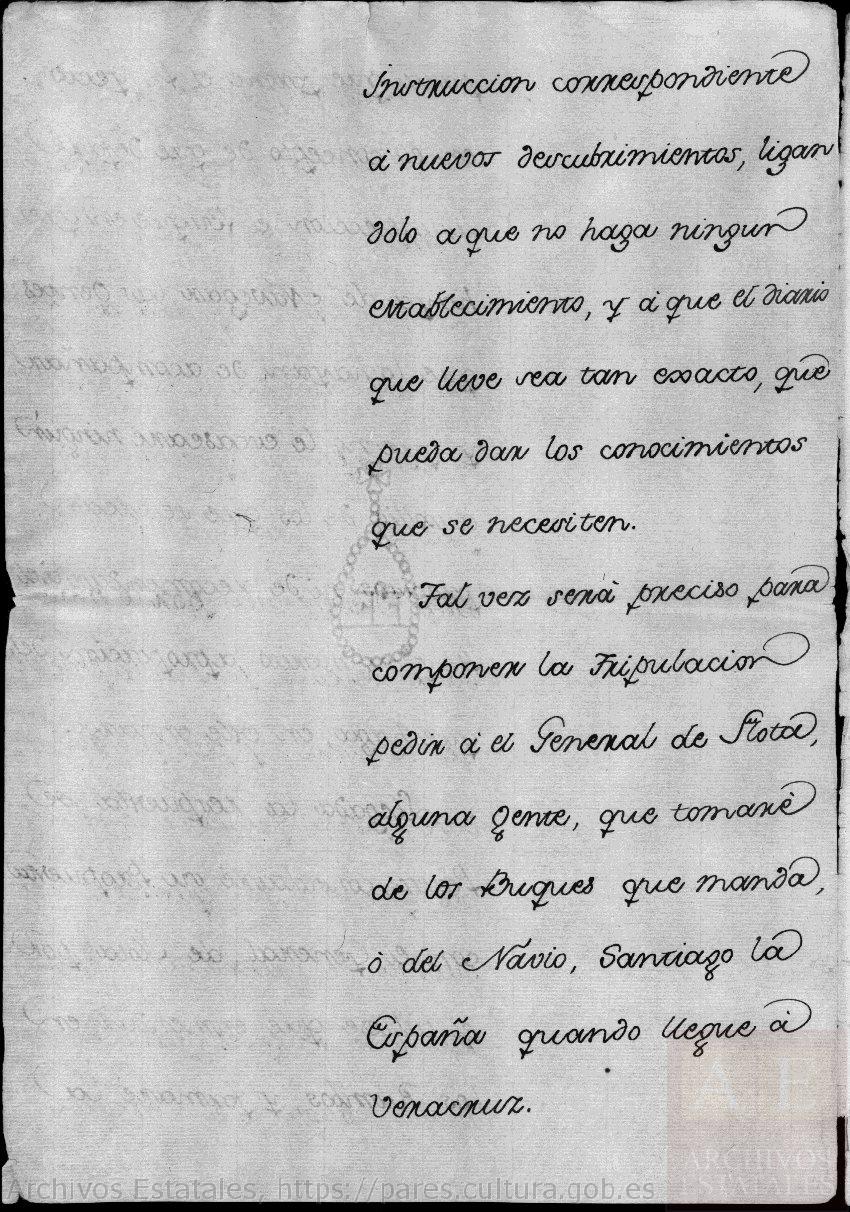 Instruccion correspondiente
à nuevos descubrimientos, ligan
dolo a que no haga ningun
establecimiento, y à que el diario
que lleve sea tan exacto, que
pueda dar los conocimientos
que se necesiten.
Tal vez serà preciso para
componer la Tripulacion
pedir à el General de Flota,
alguna gente, que tomarè
de los Buques que manda,
ò del Navio, Santiago la
España quando llegue à
Veracruz.
Archivos Estatales, https://pares.cultura.gob.es
AE
ARCHIVOS
ESTATALES